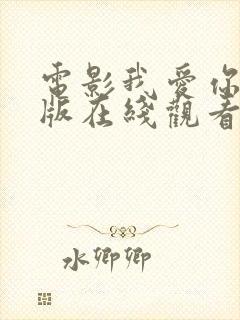 電影我愛你
版在綫觀看
水卿卿